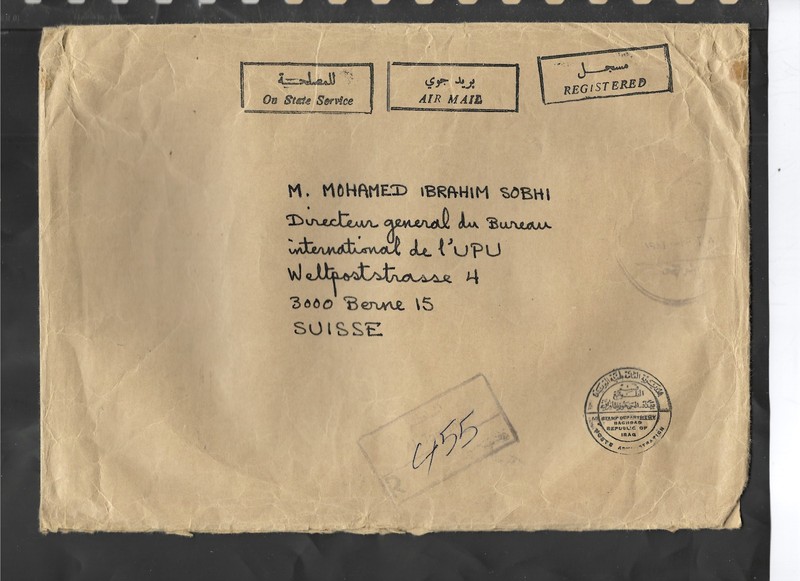 للمصلحة
On State Service
بريد جوي
AIR MAIL
مسجل
REGISTERED
M. MOHAMED IBRAHIM SOBHI
Directeur general du Bureau
international de l'UPU
Weltpoststrasse 4
3000 Berne 15
SUISSE
R
455
STAMP DEPARTMENT
BAGHDAD
REPUBLIC OF
IRAQ
POSTS ADMINISTRATION